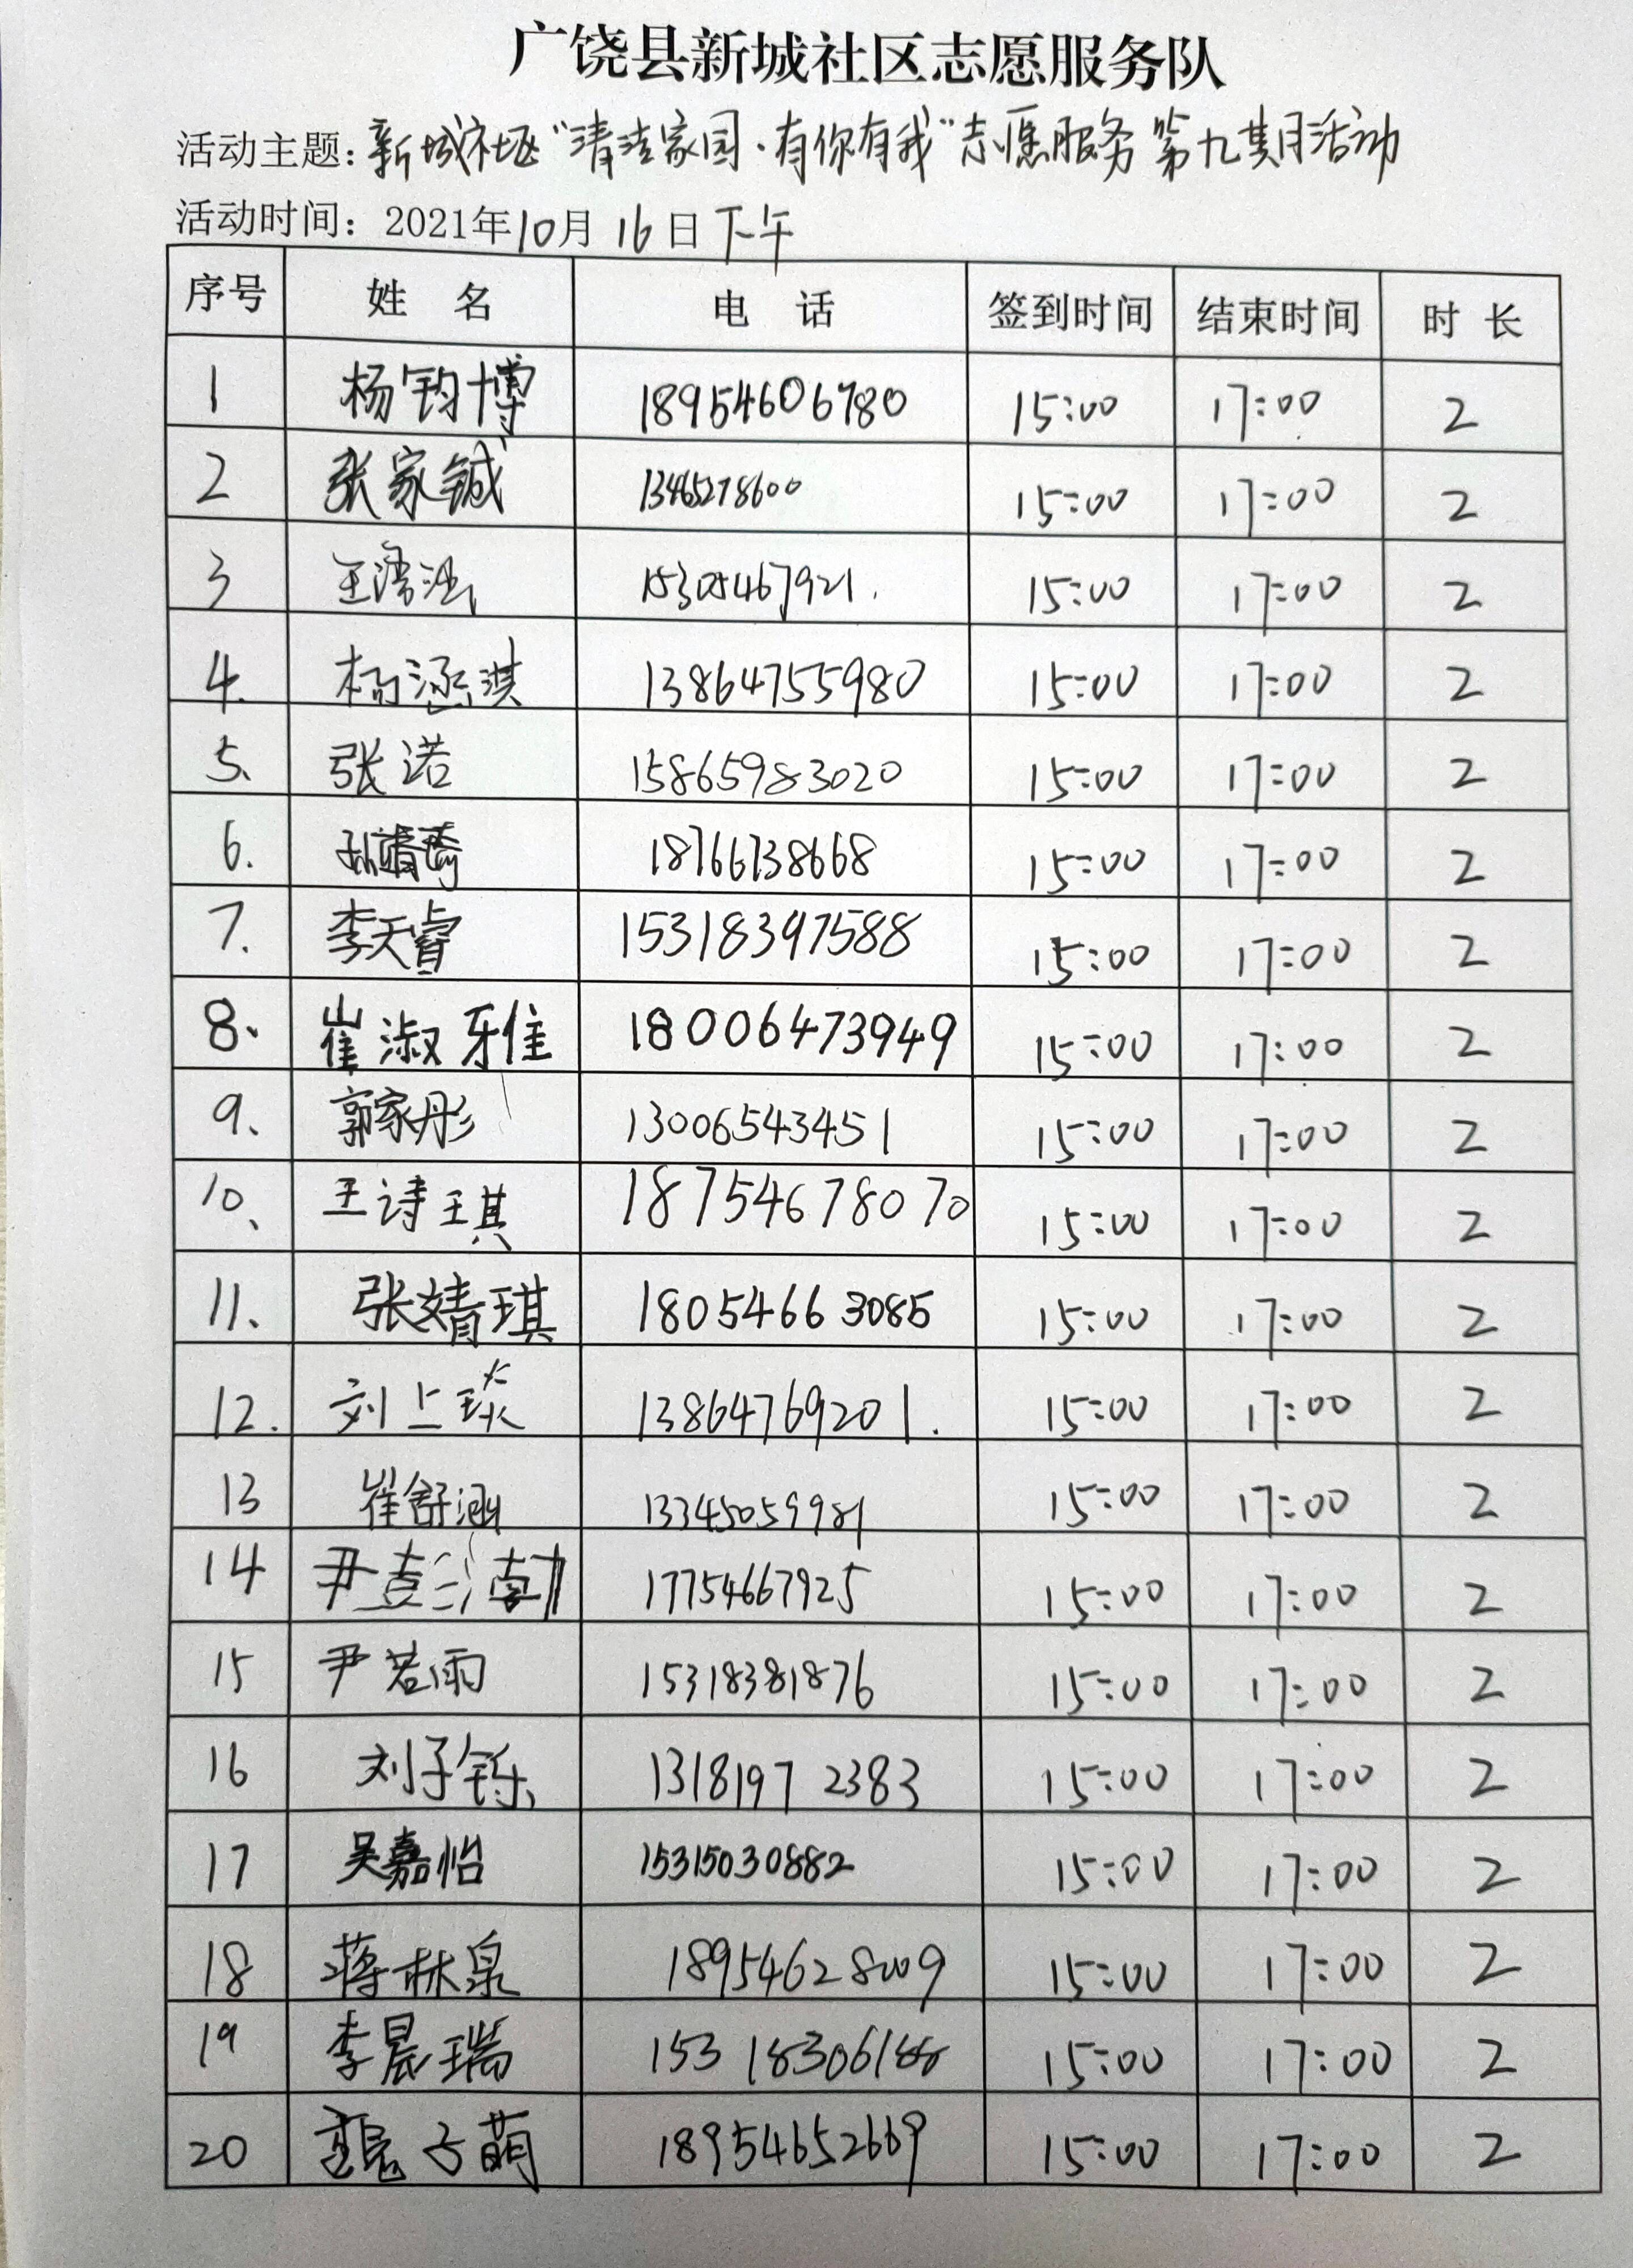 广饶县新城社区志愿服务队
活动主题：新城社区“清洁家园·有你有我”志愿服务第九期活动
活动时间：2021年10月16日下午
序号 姓名 电话 签到时间 结束时间 时长
1 杨钧博 18954606780 15:00 17:00 2
2 张家铖 13465278600 15:00 17:00 2
3 王 15305467921. 15:00 17:00 2
4. 杨涵淇 13864755980 15:00 17:00 2
5、 张诺 15865983020 15:00 17:00 2
6. 孙 18766738668 15:00 17:00 2
7. 李天睿 15318397588 15:00 17:00 2
8、 崔淑雅 18006473949 15:00 17:00 2
9、 郭家彤 13006543451 15:00 17:00 2
10、 王诗琪 18754678070 15:00 17:00 2
11、 张婧琪 18054663085 15:00 17:00 2
12. 刘上琰 13864769201. 15:00 17:00 2
13 崔舒涵 13345059981 15:00 17:00 2
14 尹 17754667925 15:00 17:00 2
15 尹若雨 15318381876 15:00 17:00 2
16 刘子铄 13181972383 15:00 17:00 2
17 吴嘉怡 15315030882 15:00 17:00 2
18 蒋林泉 18954628009 15:00 17:00 2
19 李晨瑞 15318306188 15:00 17:00 2
20 子萌 18954652669 15:00 17:00 2